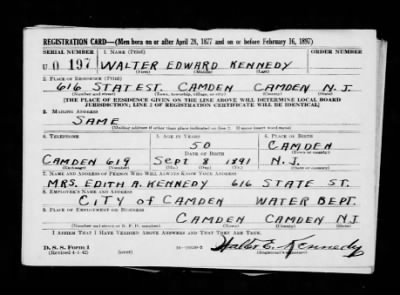 REGISTRATION CARD—(Men born on or after April 28, 1877 and on or before February 16, 1897)
SERIAL NUMBER 1. NAME (Print) ORDER NUMBER
U 0197 WALTER EDWARD KENNEDY
(First) (Middle) (Last)
2. PLACE OF RESIDENCE (Print)
616 STATE ST. CAMDEN CAMDEN N.J.
(Number and street) (Town, township, village, or city) (County) (State)
[THE PLACE OF RESIDENCE GIVEN ON THE LINE ABOVE WILL DETERMINE LOCAL BOARD
JURISDICTION; LINE 2 OF REGISTRATION CERTIFICATE WILL BE IDENTICAL]
3. MAILING ADDRESS
SAME
[Mailing address if other than place indicated on line 2. If same insert word same]
4. TELEPHONE 5. AGE IN YEARS 6. PLACE OF BIRTH
50 CAMDEN
DATE OF BIRTH (Town or county)
CAMDEN 619 SEPT 8 1891 N.J.
(Exchange) (Number) (Mo.) (Day) (Yr.) (State or country)
7. NAME AND ADDRESS OF PERSON WHO WILL ALWAYS KNOW YOUR ADDRESS
MRS. EDITH A. KENNEDY 616 STATE ST.
8. EMPLOYER'S NAME AND ADDRESS
CITY OF CAMDEN WATER DEPT.
9. PLACE OF EMPLOYMENT OR BUSINESS
CAMDEN CAMDEN N.J.
(Number and street or R. F. D. number) (Town) (County) (State)
I AFFIRM THAT I HAVE VERIFIED ABOVE ANSWERS AND THAT THEY ARE TRUE.
D. S. S. Form 1 Walter E. Kennedy
(Revised 4-1-42) (over) (Registrant's signature)